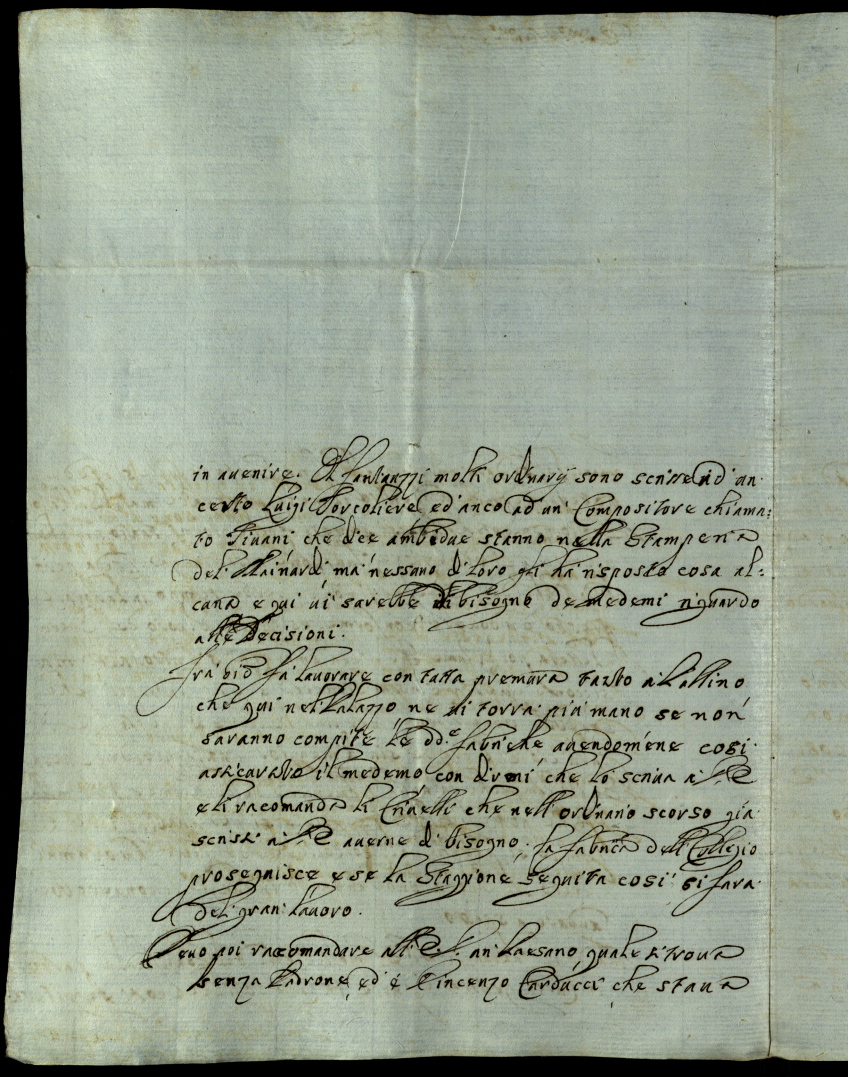 in auenire. Il Fantauzzi molti ordinarij sono scrisse ad' un'
certo Luigi Torcoliere, ed'anco ad'un' Compositore chiama:
to Tiuani che dice ambidue stanno nella Stamperia
del' Mainardi ma' nessuno di loro gli ha' risposto cosa al:
cuna e qui ui' sarebbe di bisogno de medemi riguardo
alle Decisioni.
Fra' fa' lauorare con tutta premura tanto a
che qui nel' Palazzo ne ui torra' piu' mano se non'
saranno compite le dd.e fabriche auendomene cosi'
assicurato il medemo con dirmi' che lo scriua a
e li racomanda li Criuelli che nell'ordinario scorso gia'
scrissi a auerne di bisogno. La fabrica dell Collegio
proseguisce e se la Staggione seguita cosi' si fara'
del' gran' lauoro.
Deuo poi racomandare all' un Paesano quale si troua
senza Padrone, ed' é Vincenzo Carducci che staua